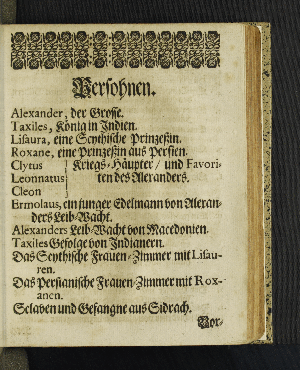 Persohnen.
Alexander, der Grosse.
Taxiles, König in Indien.
Lisaura, eine Scythische Prinzeßin.
Roxane, eine Prinzeßin aus Persien.
Clytus } Kriegs-Häupter / und Favori-
Leonnatus } ten des Alexanders.
Cleon }
Ermolaus, ein junger Edelmann von Alexan-
ders Leib-Wacht.
Alexanders Leib-Wacht von Macedonien.
Taxiles Gefolge von Indianern.
Das Scythische Frauen-Zimmer mit Lisau-
ren.
Das Persianische Frauen-Zimmer mit Rox-
anen.
Sclaven und Gefangne aus Sidrach.
Vor-